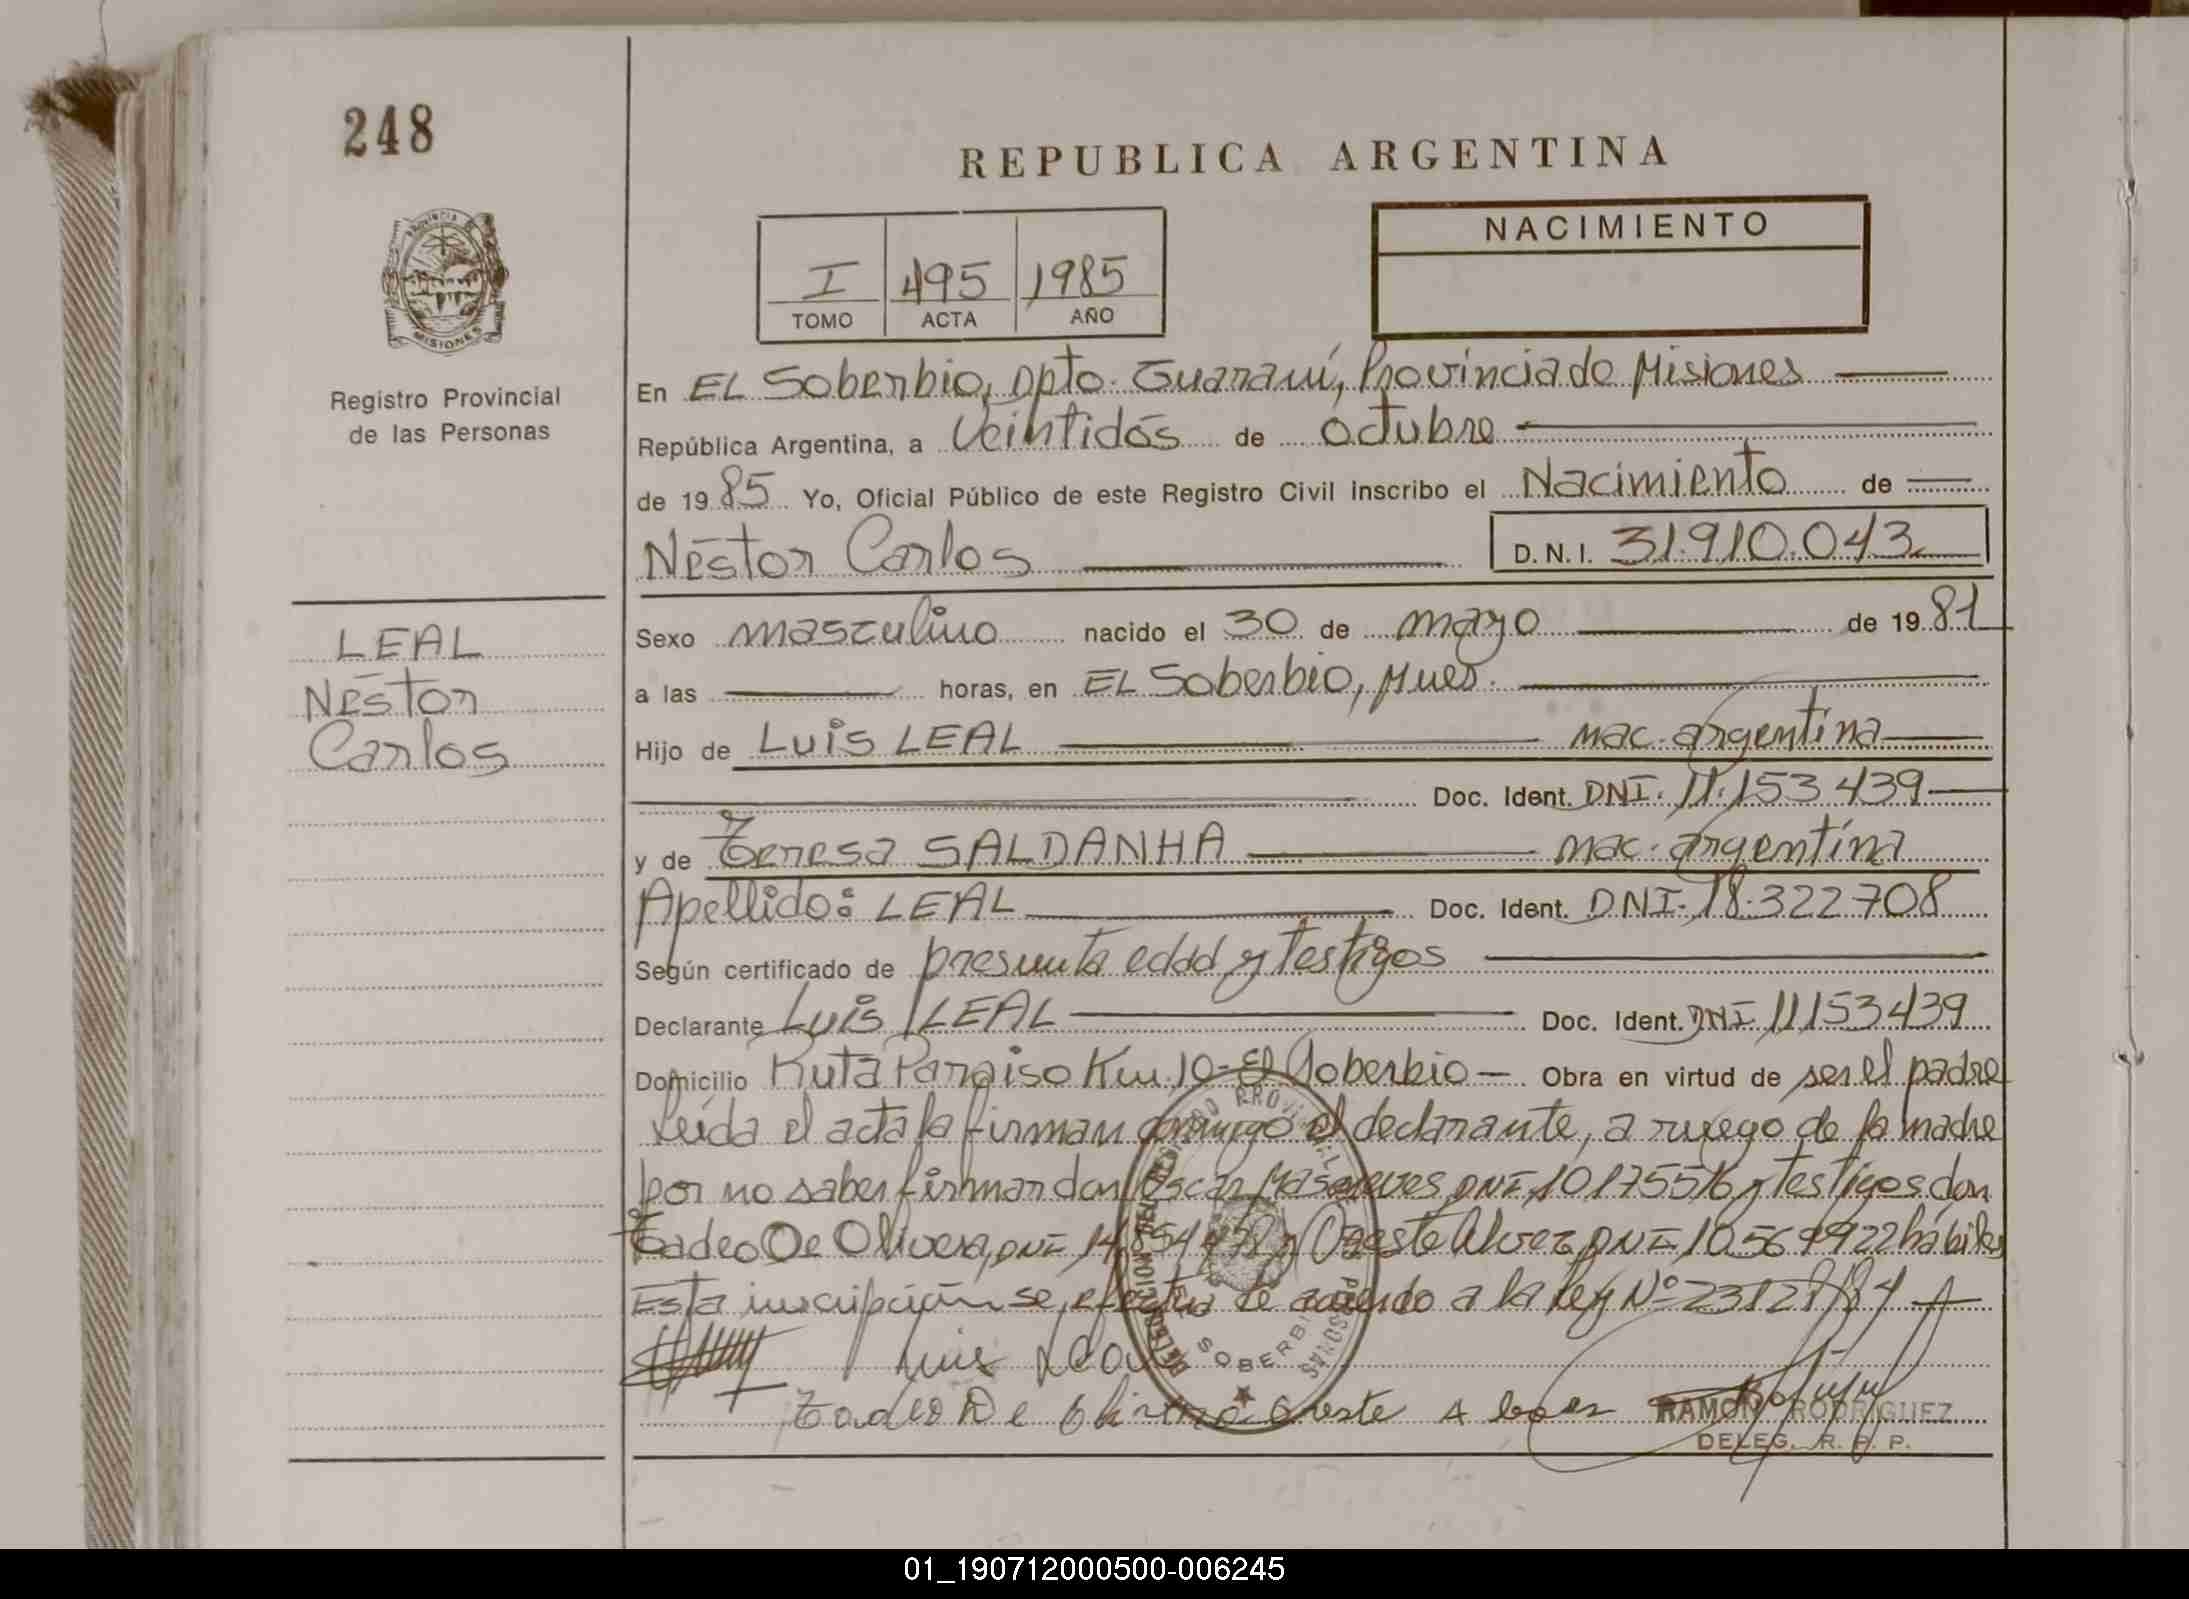 248
REPUBLICA ARGENTINA
PROVINCIA DE
MISIONES
Registro Provincial
de las Personas
I 495 1985
TOMO ACTA AÑO
NACIMIENTO
En EL Soberbio, Dpto. Guaraní, Provincia de Misiones
República Argentina, a Veintidós de octubre
de 1985 Yo, Oficial Público de este Registro Civil inscribo el Nacimiento de
Néstor Carlos D.N.I. 31.910.043
LEAL
Néstor
Carlos
Sexo masculino nacido el 30 de mayo de 1981
a las horas, en EL Soberbio, Mnes.
Hijo de Luis LEAL nac. argentina
Doc. Ident. DNI. 11.153 439
y de Teresa SALDANHA nac. argentina
Apellido: LEAL Doc. Ident. DNI. 18.322.708
Según certificado de presunta edad y testigos
Declarante Luis LEAL Doc. Ident. DNI 11153439
Domicilio Ruta Paraiso Km. 10 - El Soberbio - Obra en virtud de ser el padre
Leída el acta la firman conmigo el declarante, a ruego de la madre
por no saber firmar don Oscar DNI 10175516 y testigos don
Tadeo De Olivera, DNI y Oreste Alvez DNI hábiles
Esta inscripción se efectúa de acuerdo a la ley Nº 23128/84
Luis Leal
Tadeo De Olivera Oreste
RAMON RODRIGUEZ
DELEG. R. P. P.
SOBERBIO
01_190712000500-006245